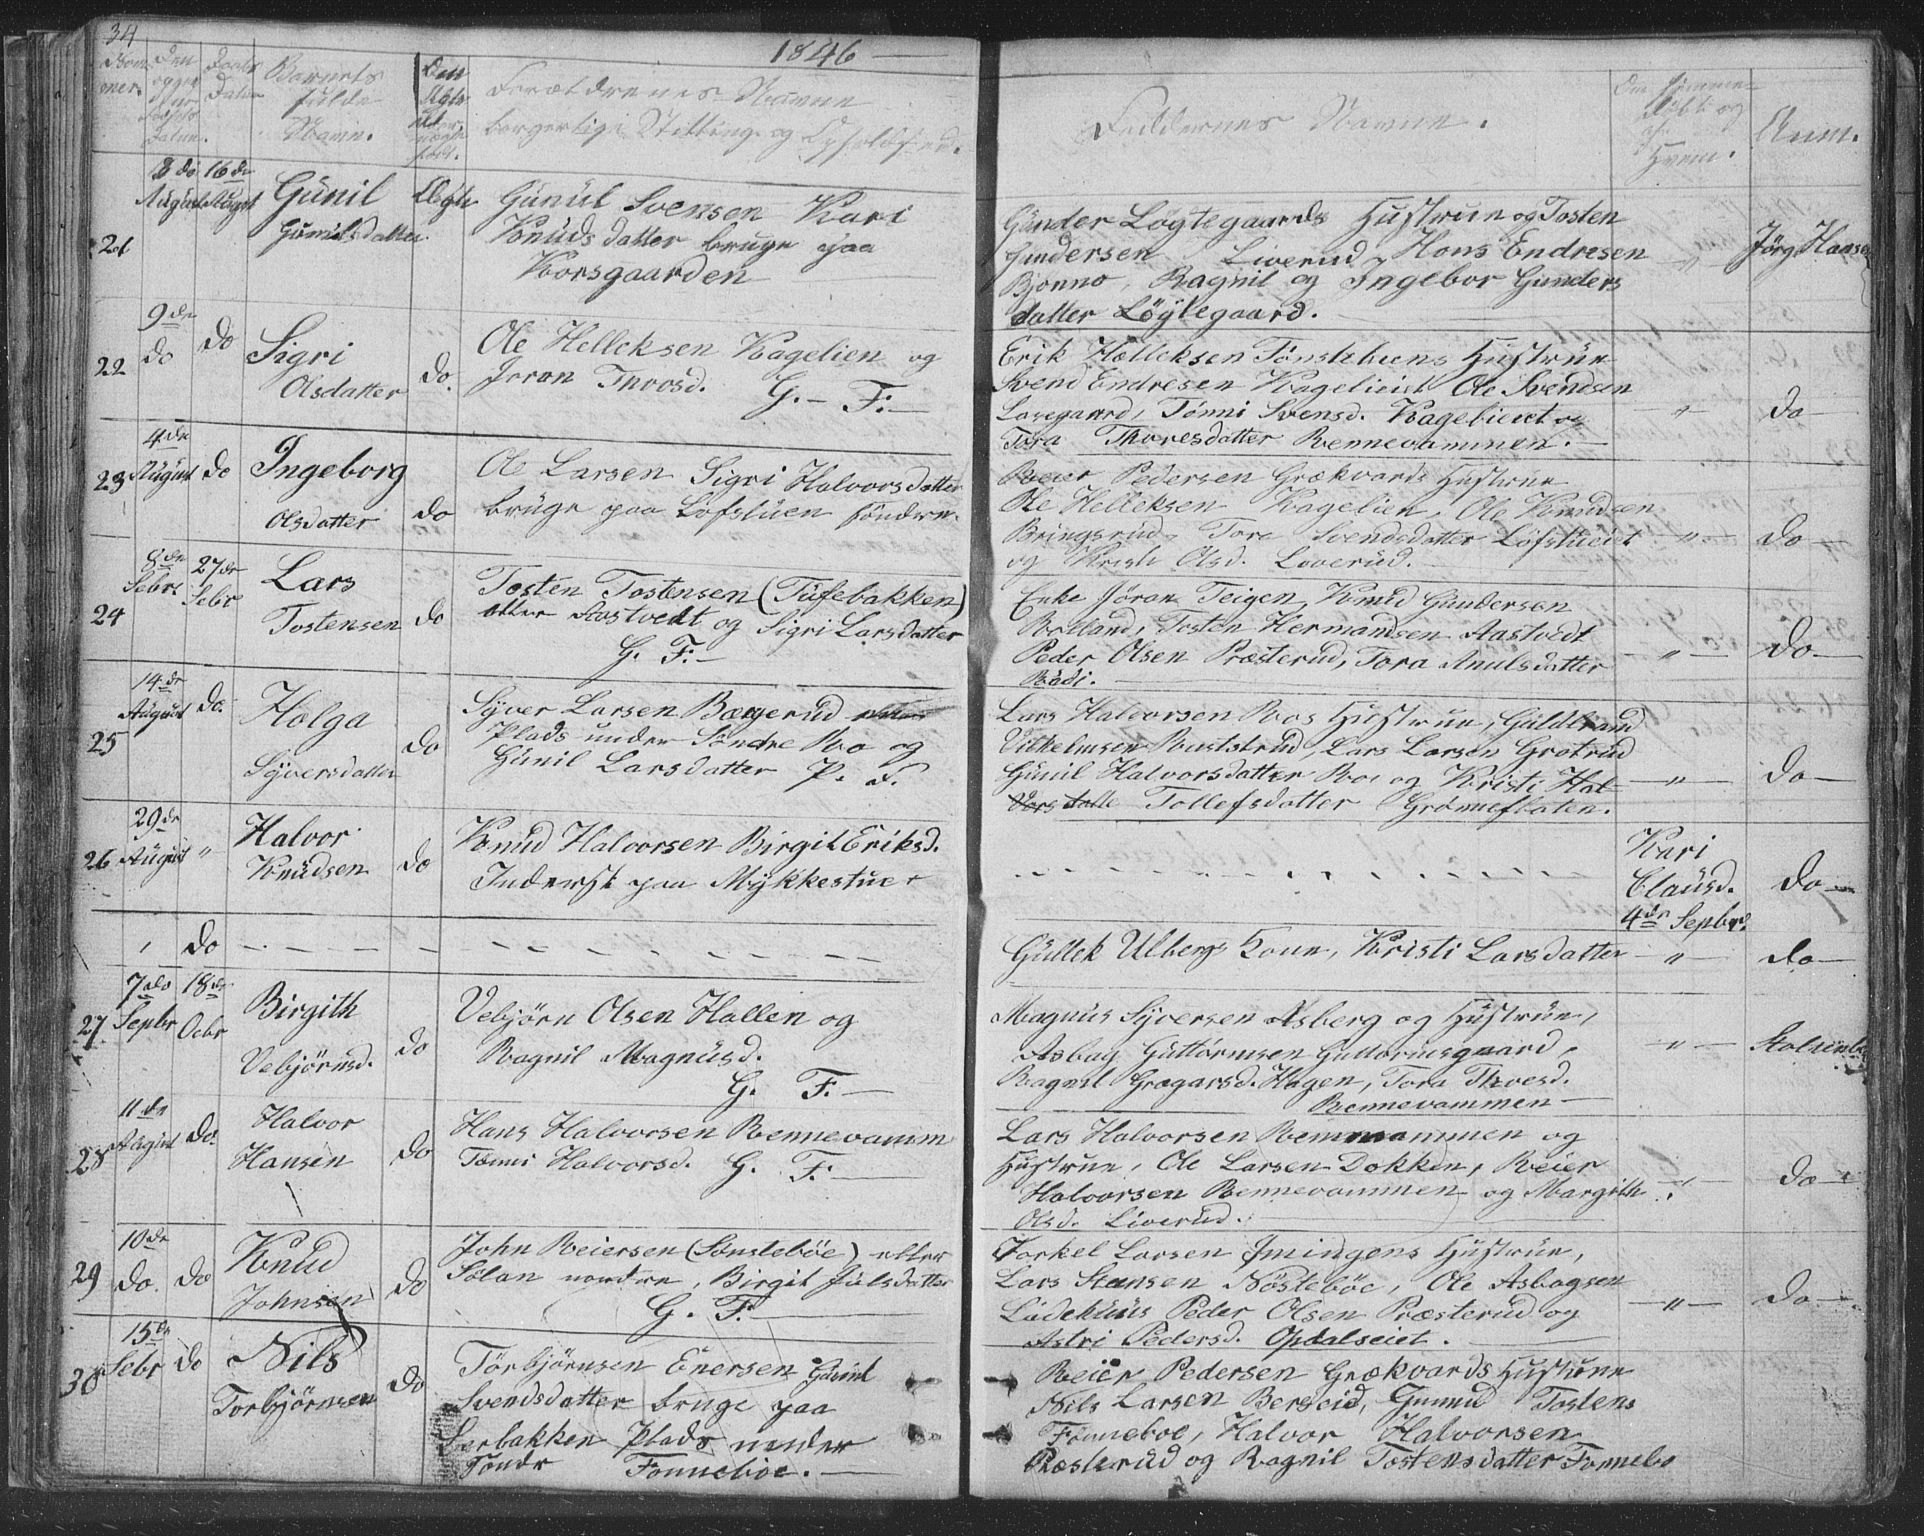 34
1846
Den
Barnets
fulde
Navn.
Den
Forældrenes Navne
borgerlige Stilling og Opholdssted.
Faddernes Navne.
Om hjemme
døbt og
af
Hvem.
Anm.
21
3 do
August
16 de
August
Gunil
Gunulsdatter
Ægte
Gunul Svensen Kari
Knudsdatter bruge paa
Korsgaarden
Gunder Løgtegaards Hustrue og Tosten
Gundersen Liverud, Hans Endresen
Bjønno, Ragnil og Ingebor Gunders
datter Løytegaard.
"
Jørg Hansen
22
9 de
do
do
Sigri
Olsdatter
do.
Ole Helleksen Kagelien og
Joran Thorsd. G. F.
Erik Helleksen Hustrue
Svend Endresen Ole Svendsen
Tønni Svensd. Kagelieiet og
Tora Thoresdatter Rennevammen.
"
do
23
4 de
August
do
Ingeborg
Olsdatter
do
Ole Larsen Sigri Halvorsdatter
bruge paa Løfstuen søndre.
Reier Pedersen Grækvards Hustrue
Ole Helleksen Kagelien, Ole Knudsen
Bringsrud, Tora Svendsdatter Løfstueiet
og Kristi Olsd. Loverud.
"
do
24
8 de
Sebr.
27 de
Sebr
Lars
Tostensen
do
Tosten Tostensen (Tufebakken)
eller Aastvedt og Sigri Larsdatter
G. F.
Enke Jøran Teigen, Knud Gundersen
Rolland, Tosten Hermandsen Aastvedt
Peder Olsen Præsterud, Tora Anulsdatter
"
do
25
14 de
August
do.
Holga
Syversdatter
do
Syver Larsen Bægerud
Plads under Søndre Ro og
Gunil Larsdatter P. F.
Lars Halvorsen Roes Hustrue, Guldbrand
Vilhelmsen Ruststrud, Lars Larsen Grotrud
Gunil Halvorsdatter Roe og Kristi Hal
vors datte Tollefsdatter Grønneflaten.
"
do
26
29 de
August
"
Halvor
Knudsen
do
Knud Halvorsen Birgit Eriksd.
Inderst paa Mykkestue
Kari
Clausd.
4 de Septbr.
do
do
Gullek Ulbergs Kone, Kristi Larsdatter
"
do
27
7 do
Sepbr
18 de
Ocbr
Birgith
Vebjørnsd.
do
Vebjørn Olsen Hallen og
Ragnil Magnusd.
G. F.
Magnus Syversen Asberg og Hustrue,
Asbag Guttormsen Guttormsgaard,
Ragnil Grægarsd. Hagen, Tora Thoesd.
Rennevammen
"
28
11 de
August
do.
Halvor
Hansen
do
Hans Halvorsen Rennevamm
Tønni Halvorsd. G. F.
Lars Halvorsen Rennevammen og
Hustrue, Ole Larsen Dokken, Reier
Halvorsen Rennevammen og Margith
Olsd. Liverud.
"
do
29
10 de
do.
do
Knud
Johnsen
do
John Reiersen (Sønstebøe) eller
Sølan nordre, Birgit Julsdatter
G. F.
Torkel Larsen Imingens Hustrue,
Lars Stensen Nøstebøe, Ole Asbagsen
Ladehuus Peder Olsen Præsterud og
Astri Pedersd. Opdalseiet.
"
do
30
15 de
Sebr
do
Nils
Torbjørnsen
do
Torbjørnsen Enersen Gunil
Svendsdatter bruge paa
Lerbakken Plads under
Søndr Fønnebøe.
Reier Pedersen Grækvards Hustrue
Nils Larsen Berseid, Gunnud Tostens
Fønneboe, Halvor Halvorsen
Præsterud og Ragnil Tostensdatter Fønnebo